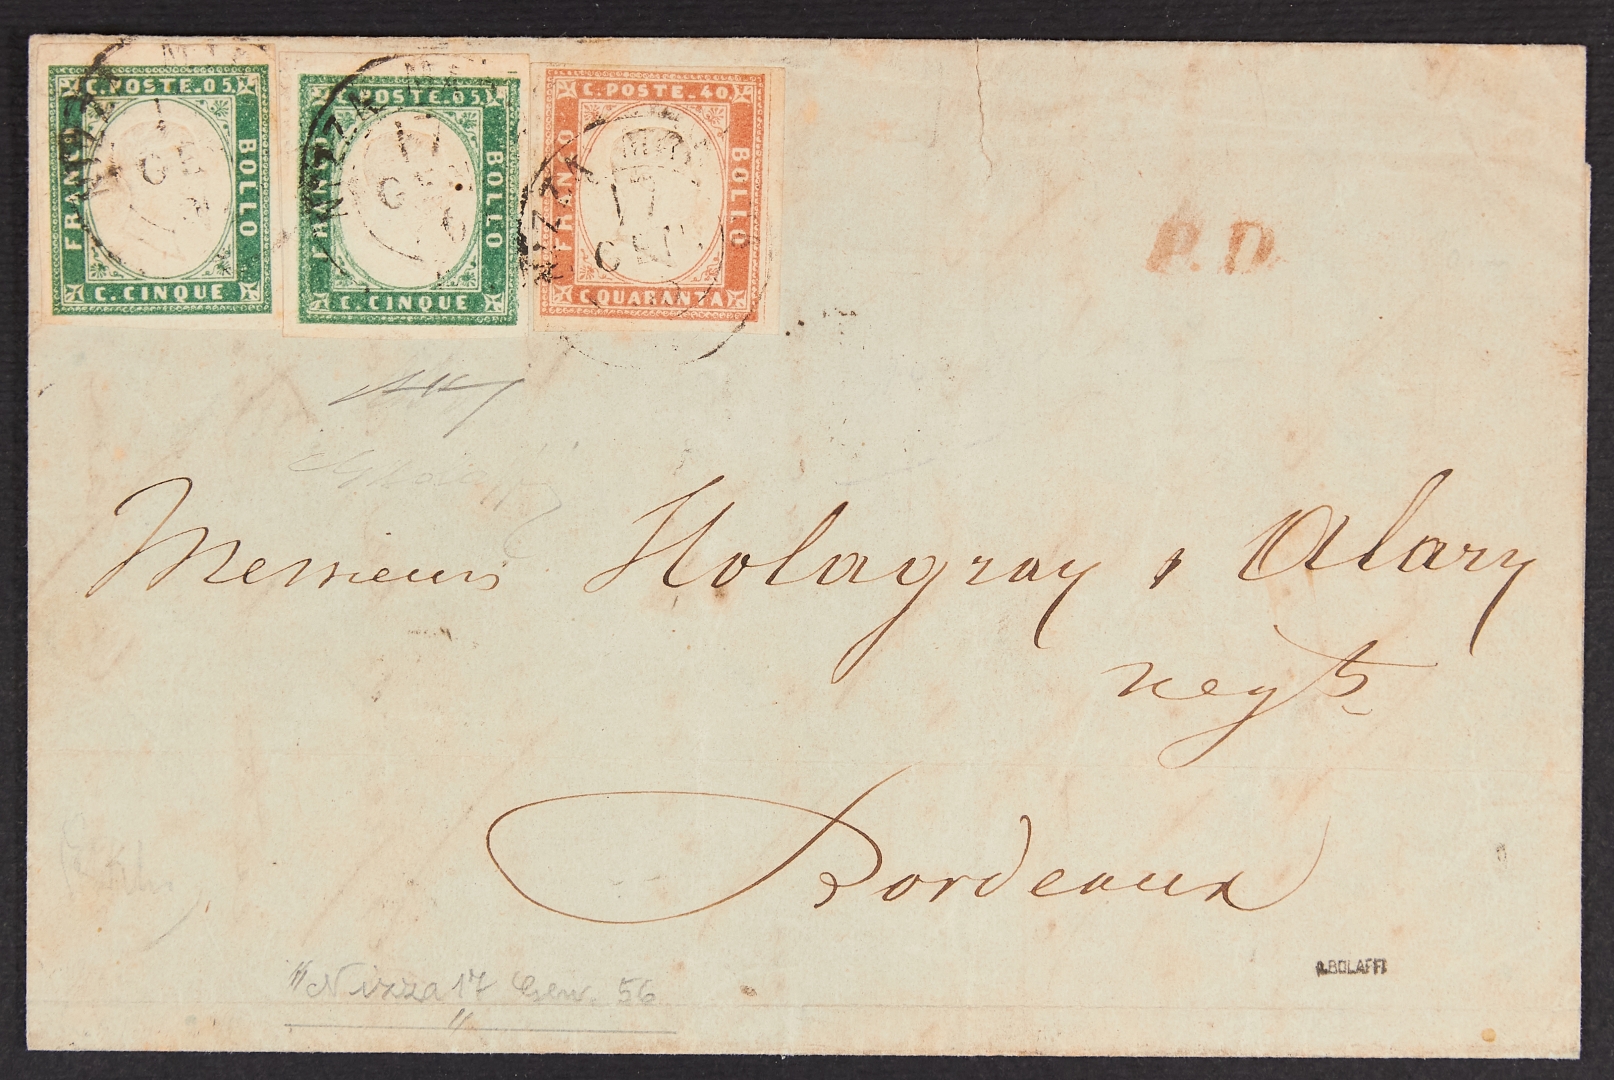 C. POSTE. 05.
FRANCO
BOLLO
C. CINQUE
C. POSTE. 05.
FRANCO
BOLLO
C. CINQUE
C. POSTE. 40.
FRANCO
BOLLO
C. QUARANTA
NIZZA MAR
17
GEN
NIZZA MAR
17
GEN
NIZZA
17
GEN
P.D.
Messieurs Holagray & Alary
negts
Bordeaux
"Nizza 17 Gen. 56"
A.BOLAFFI